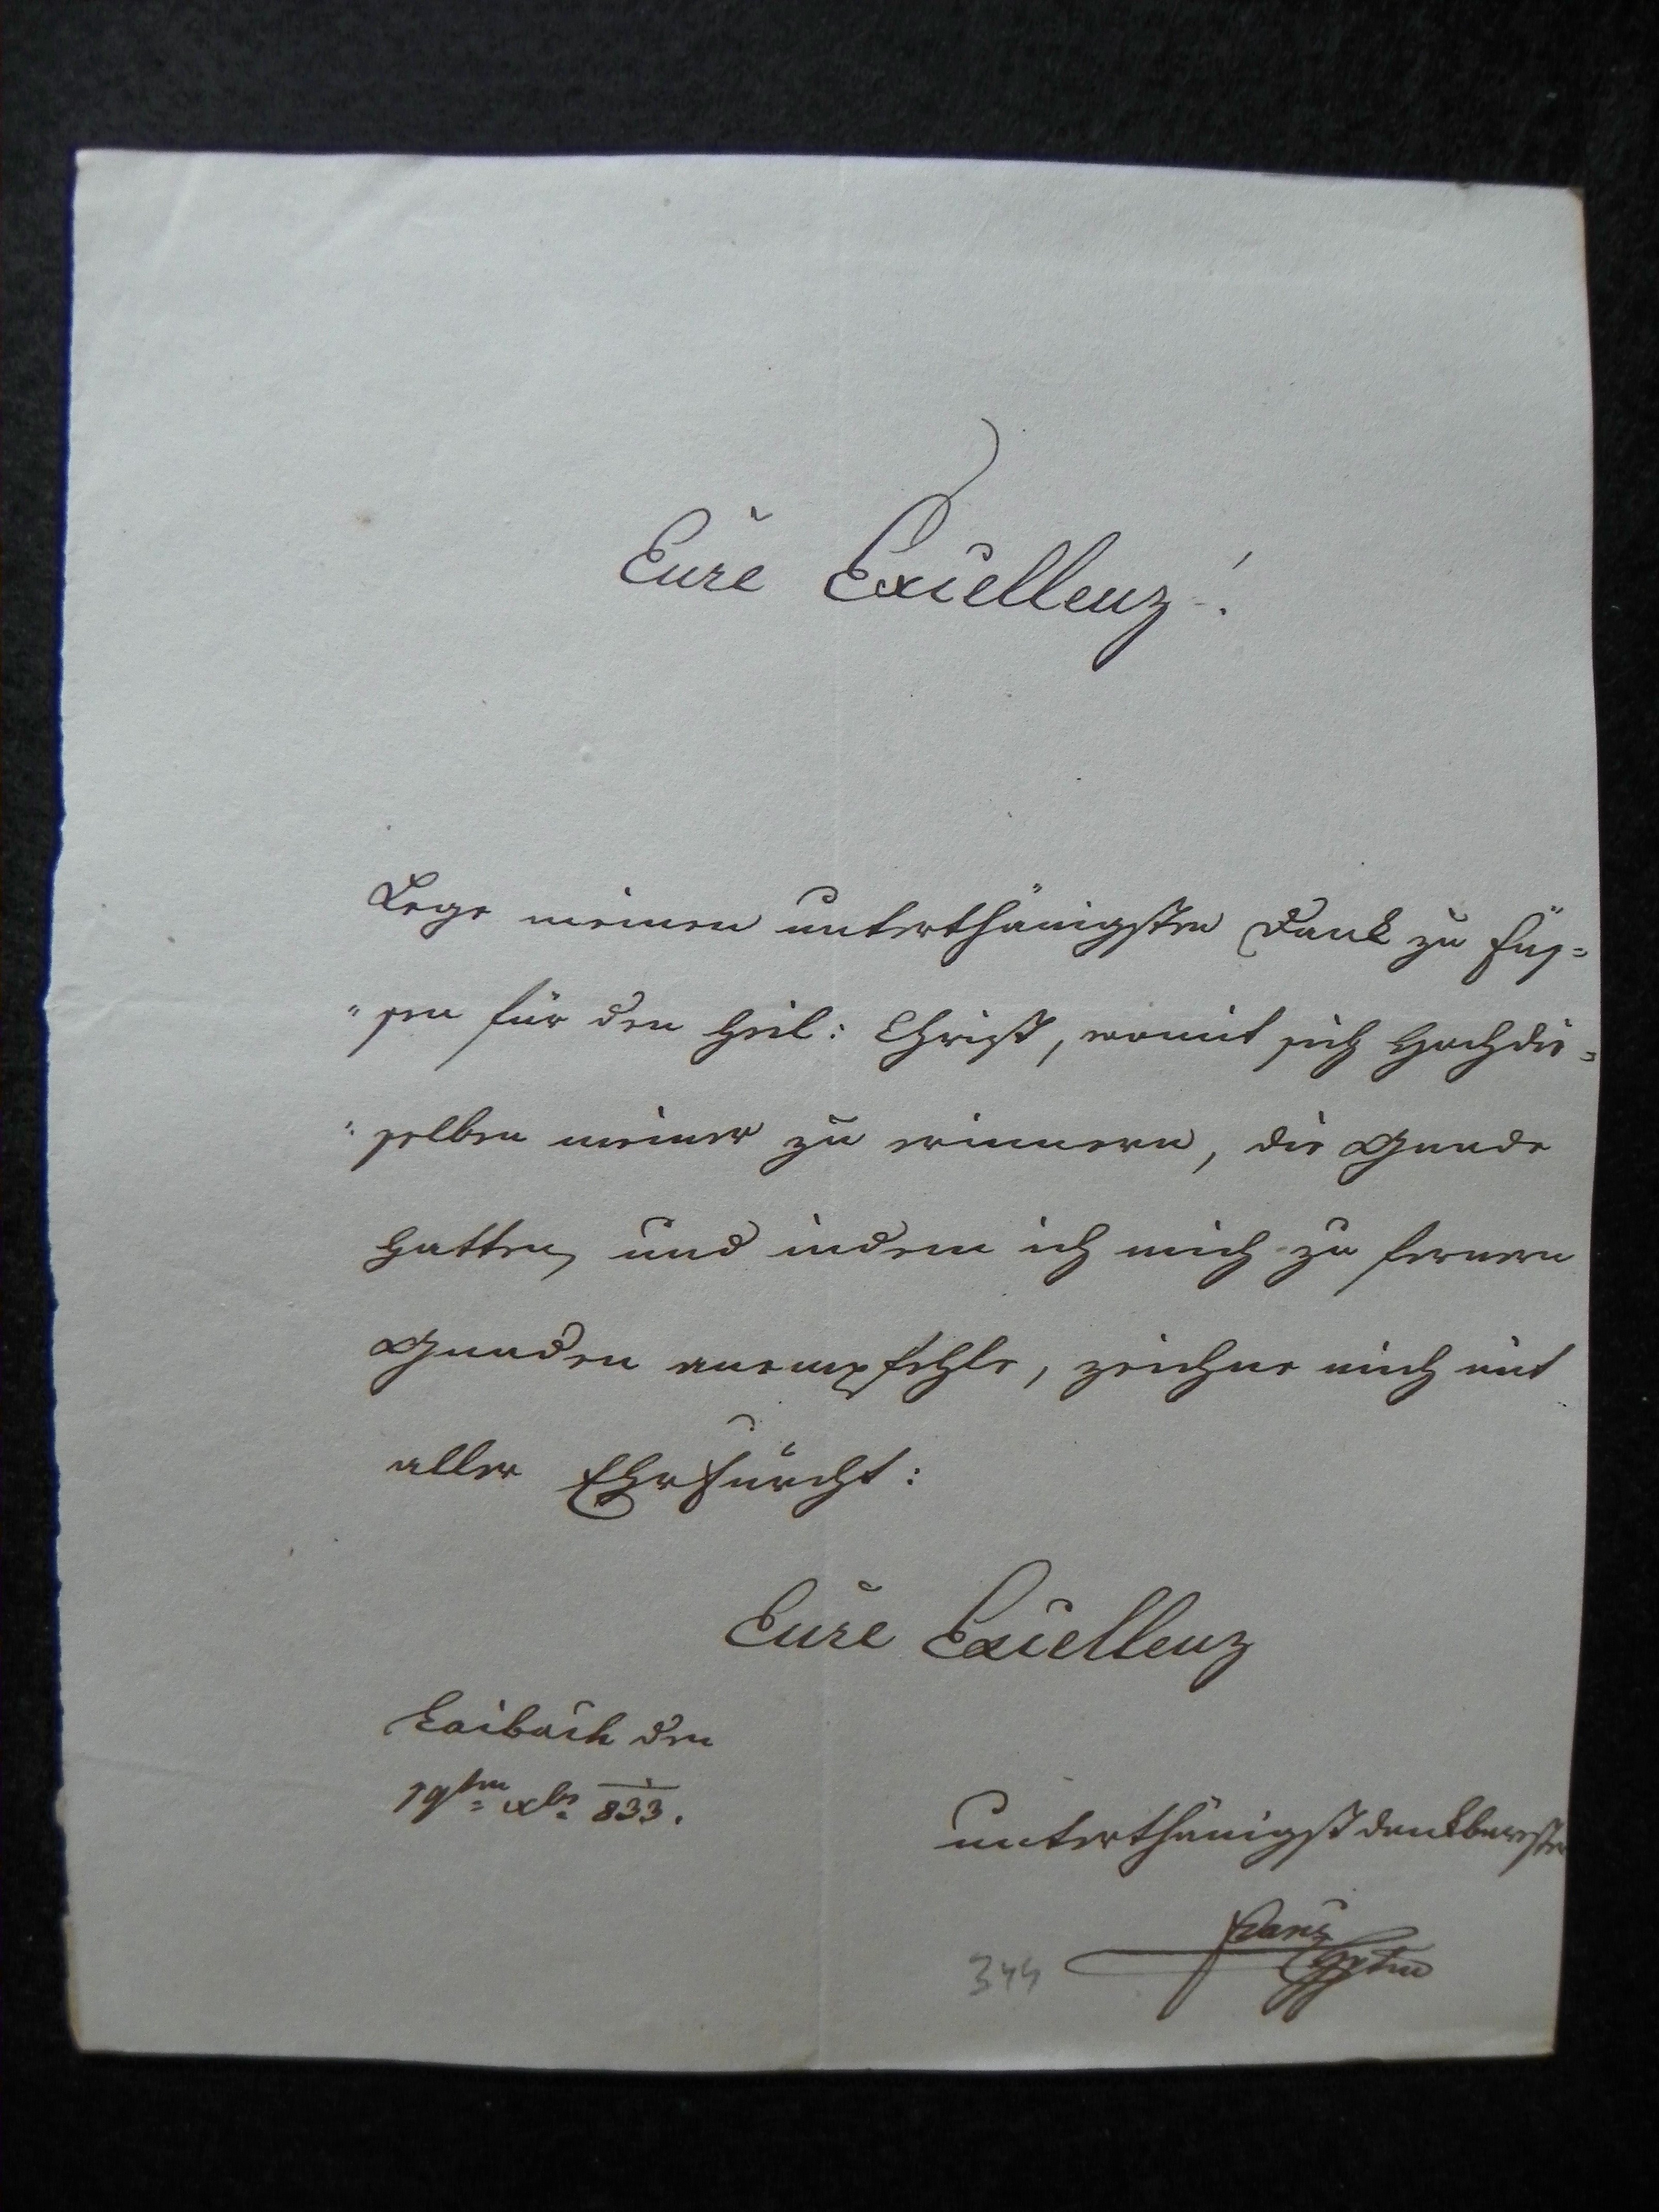 Eure Excellenz!
Lege meinen unterthänigsten Dank zu Füs=
"sen für den heil: Christ, womit sich Hochdie=
"selben meiner zu erinnern, die Gnade
hatten, und indem ich mich zu fernern
Gnaden anempfehle, zeichne mich mit
aller Ehrfurcht:
Eure Excellenz
Laibach den
19ten xbr 833.
unterthänigst dankbarster
Franz
344